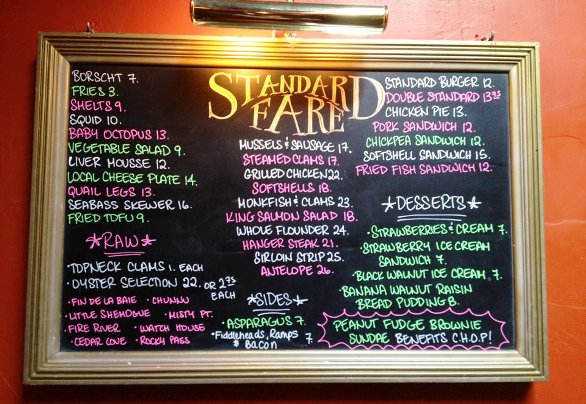 STANDARD
FARE
BORSCHT 7.
FRIES 3.
SHELTS 9.
SQUID 10.
BABY OCTOPUS 13.
VEGETABLE SALAD 9.
LIVER MOUSSE 12.
LOCAL CHEESE PLATE 14.
QUAIL LEGS 13.
SEABASS SKEWER 16.
FRIED TOFU 9.
*RAW*
•TOPNECK CLAMS 1. EACH
•OYSTER SELECTION 22. OR 2.75 EACH
•FIN DE LA BAIE •CHUNNU
•LITTLE SHEMOGUE •MISTY PT.
FIRE RIVER •WATCH HOUSE
•CEDAR COVE •ROCKY PASS
MUSSELS & SAUSAGE 17.
STEAMED CLAMS 17.
GRILLED CHICKEN 22.
SOFTSHELLS 18.
MONKFISH & CLAMS 23.
KING SALMON SALAD 18.
WHOLE FLOUNDER 24.
HANGER STEAK 21.
SIRLOIN STRIP 25.
ANTELOPE 26.
*SIDES*
•ASPARAGUS 7.
*Fiddleheads, Ramps 7
& Bacon
STANDARD BURGER 12.
DOUBLE STANDARD 13.95
CHICKEN PIE 13.
PORK SANDWICH 12.
CHICKPEA SANDWICH 12.
SOFTSHELL SANDWICH 15.
FRIED FISH SANDWICH 12.
*DESSERTS*
•STRAWBERRIES & CREAM 7.
•STRAWBERRY ICE CREAM
SANDWICH 7.
•BLACK WALNUT ICE CREAM 7.
•BANANA WALNUT RAISIN
BREAD PUDDING 8.
PEANUT FUDGE BROWNIE
SUNDAE BENEFITS C.H.O.P!